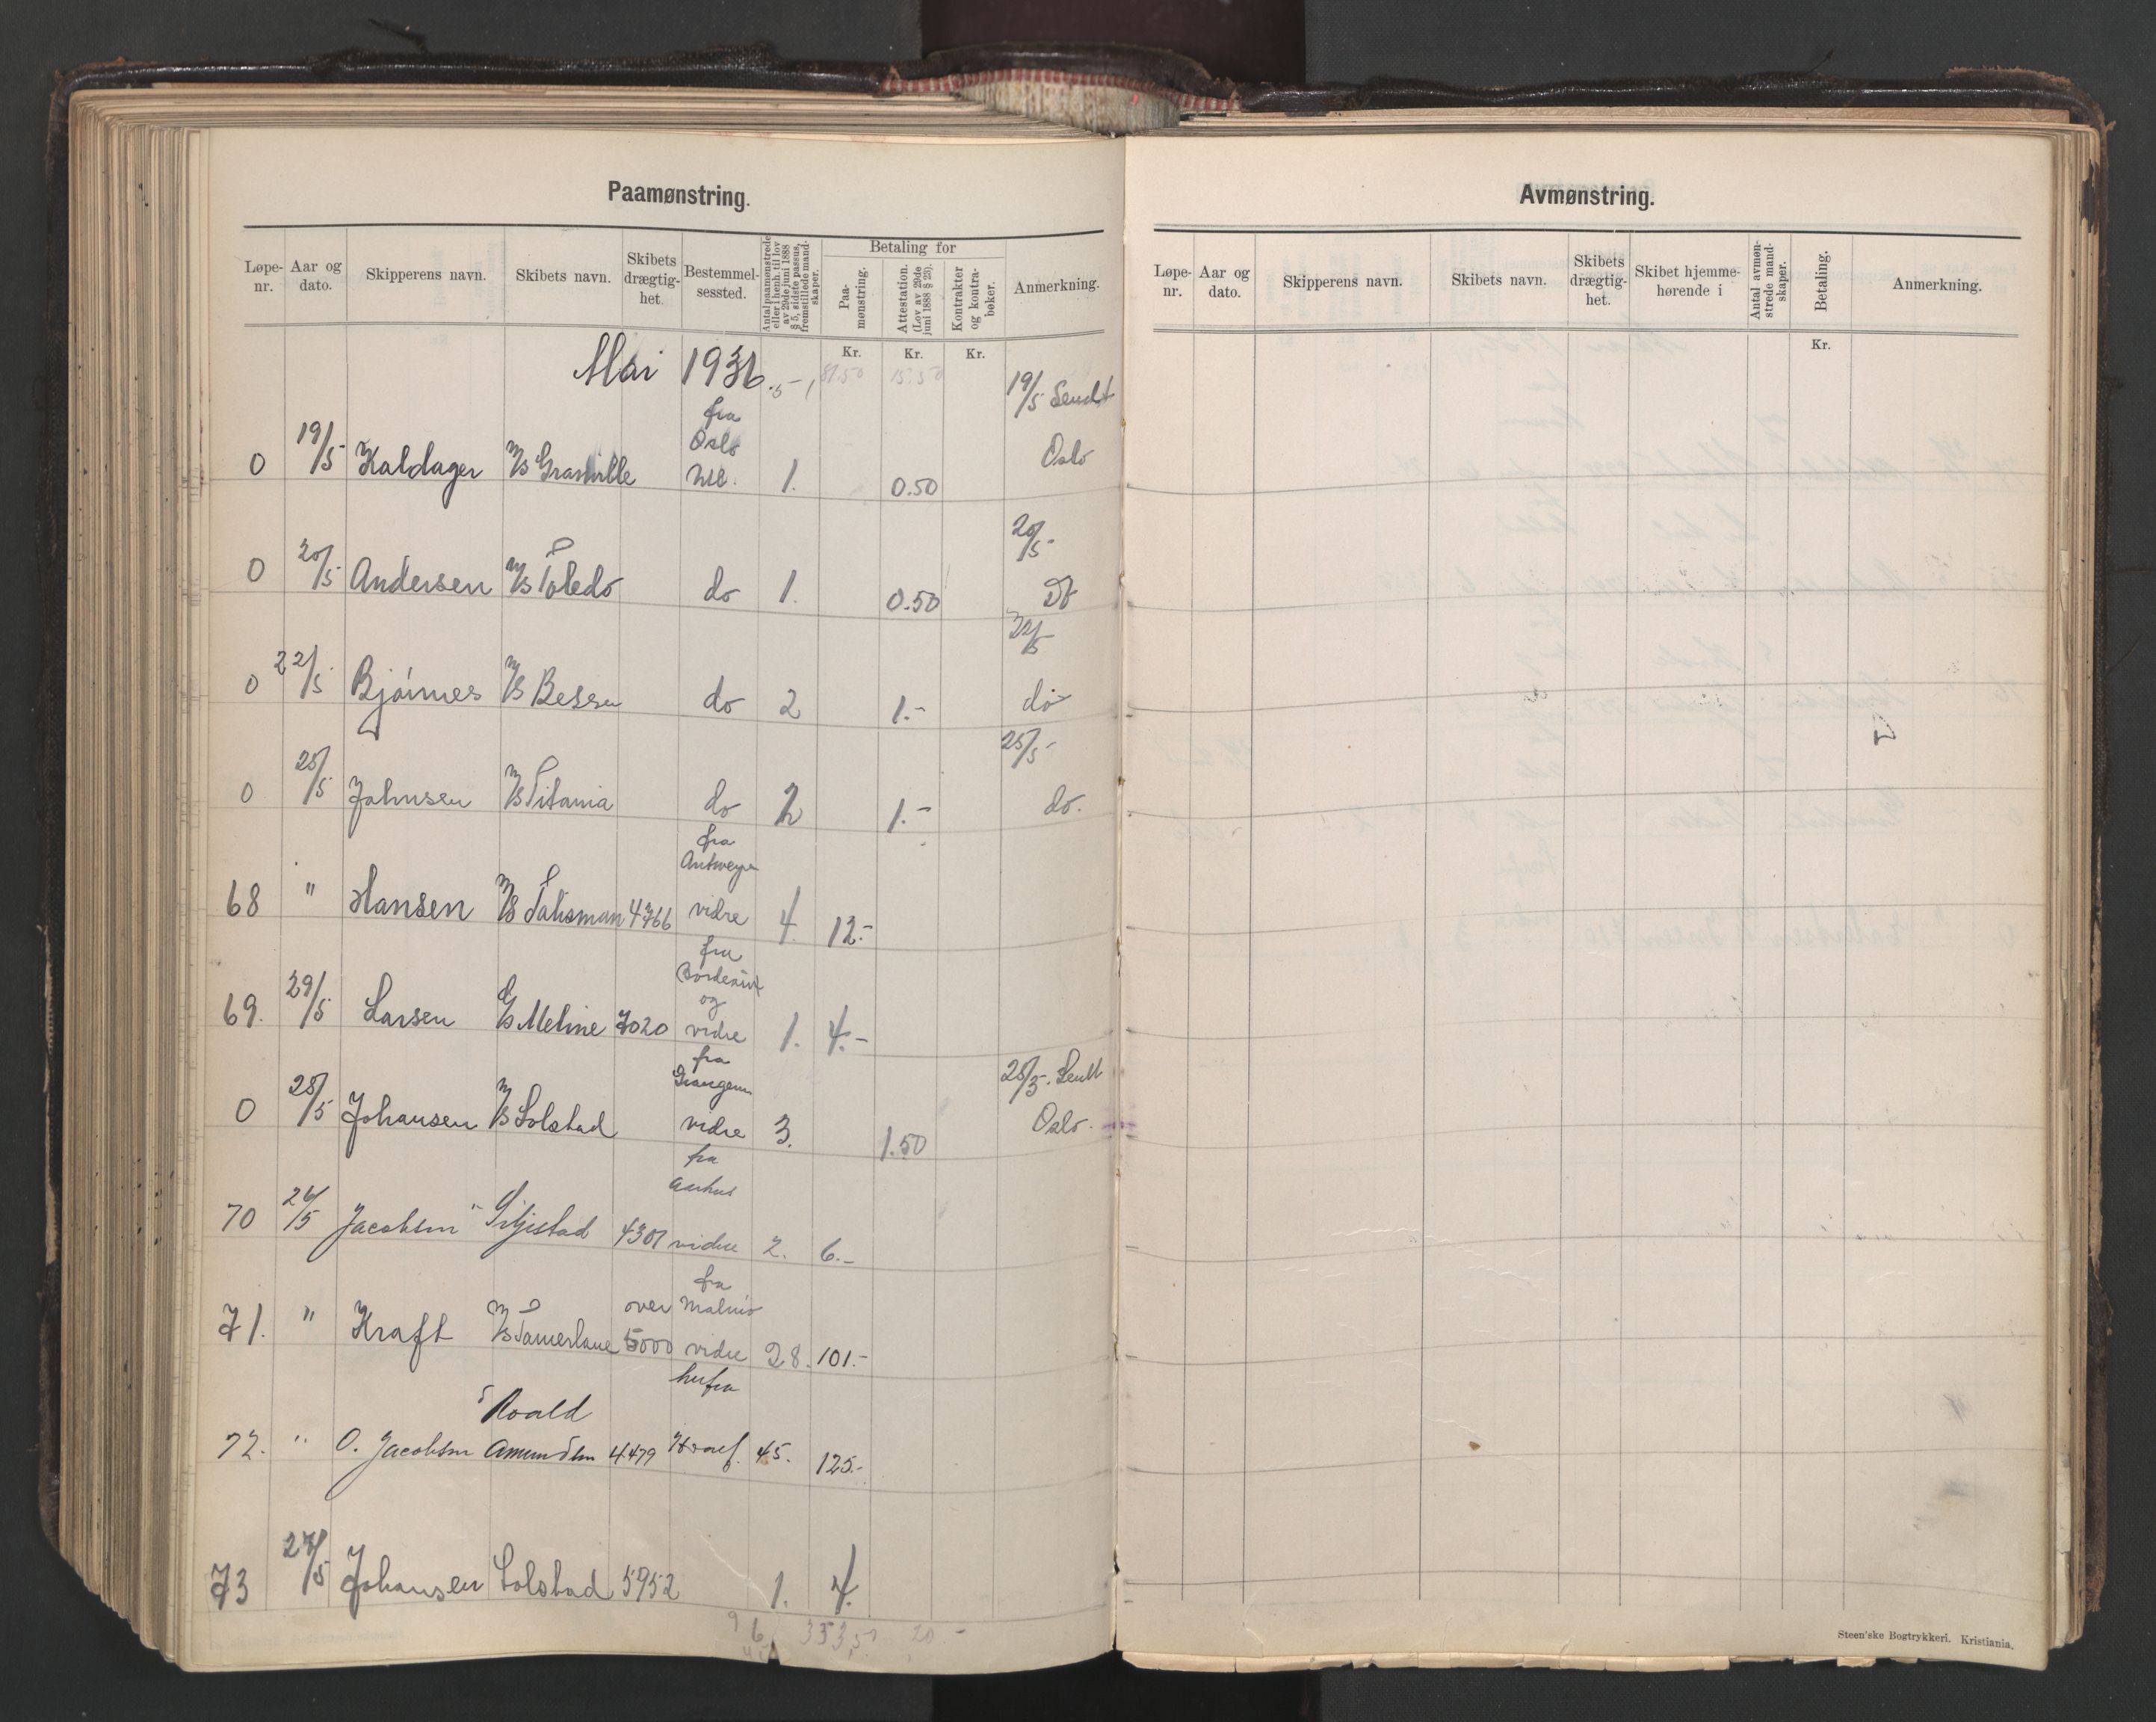 Paamønstring.
Løpe-nr. Aar og dato. Skipperens navn. Skibets navn. Skibets drægtig-het. Bestemmel-sessted. Antal paamønstrede eller i henh. til lov av 29de juni 1888 § 5, sidste passus, fremstillede mand-skaper. Betaling for Paa-mønstring. Attestation. (Lov av 29de juni 1888 § 23). Kontrakter og kontra-bøker. Anmerkning.
Kr. Kr. Kr.
Mai 1936 81.50 15.50
19/5 Sendt
fra
Oslo
0 19/5 Kaldager M/S Granville 1. 0.50 Oslo
20/5
0 20/5 Andersen M/S Toledo do 1. 0.50
22/5
0 22/5 Bjørnnes M/S Bessa do 2 1.- do
25/5
0 25/5 Johnsen M/S Titania do 2 1.- do.
fra
Antwerpen
68 " Hansen M/S Talisman 4766 vidre 4. 12.-
fra
Bordeaux
og
69. 29/5 Larsen D/S Meline 7020 vidre 1. 4.-
fra
25/5. Sendt
0 25/5 Johansen M/S Solstad vidre 3. 1.50 Oslo.
fra
Aarhus
70 26/5 Jacobsen " Siljestad 4301 vidre 2. 6.-
fra
over Malmö
71. " Kraft M/S Tamerlane 5000 vidre 28. 101.-
herfra
Roald
72. " O. Jacobsen Amundsen 4479 45. 125.-
73 27/5 Johansen Solstad 5952 1. 4.
96 353,50 20 -
Avmønstring.
Løpe-nr. Aar og dato. Skipperens navn. Skibets navn. Skibets drægtig-het. Skibet hjemme-hørende i Antal avmøn-strede mand-skaper. Betaling. Anmerkning.
Kr.
Steen'ske Bogtrykkeri. Kristiania.